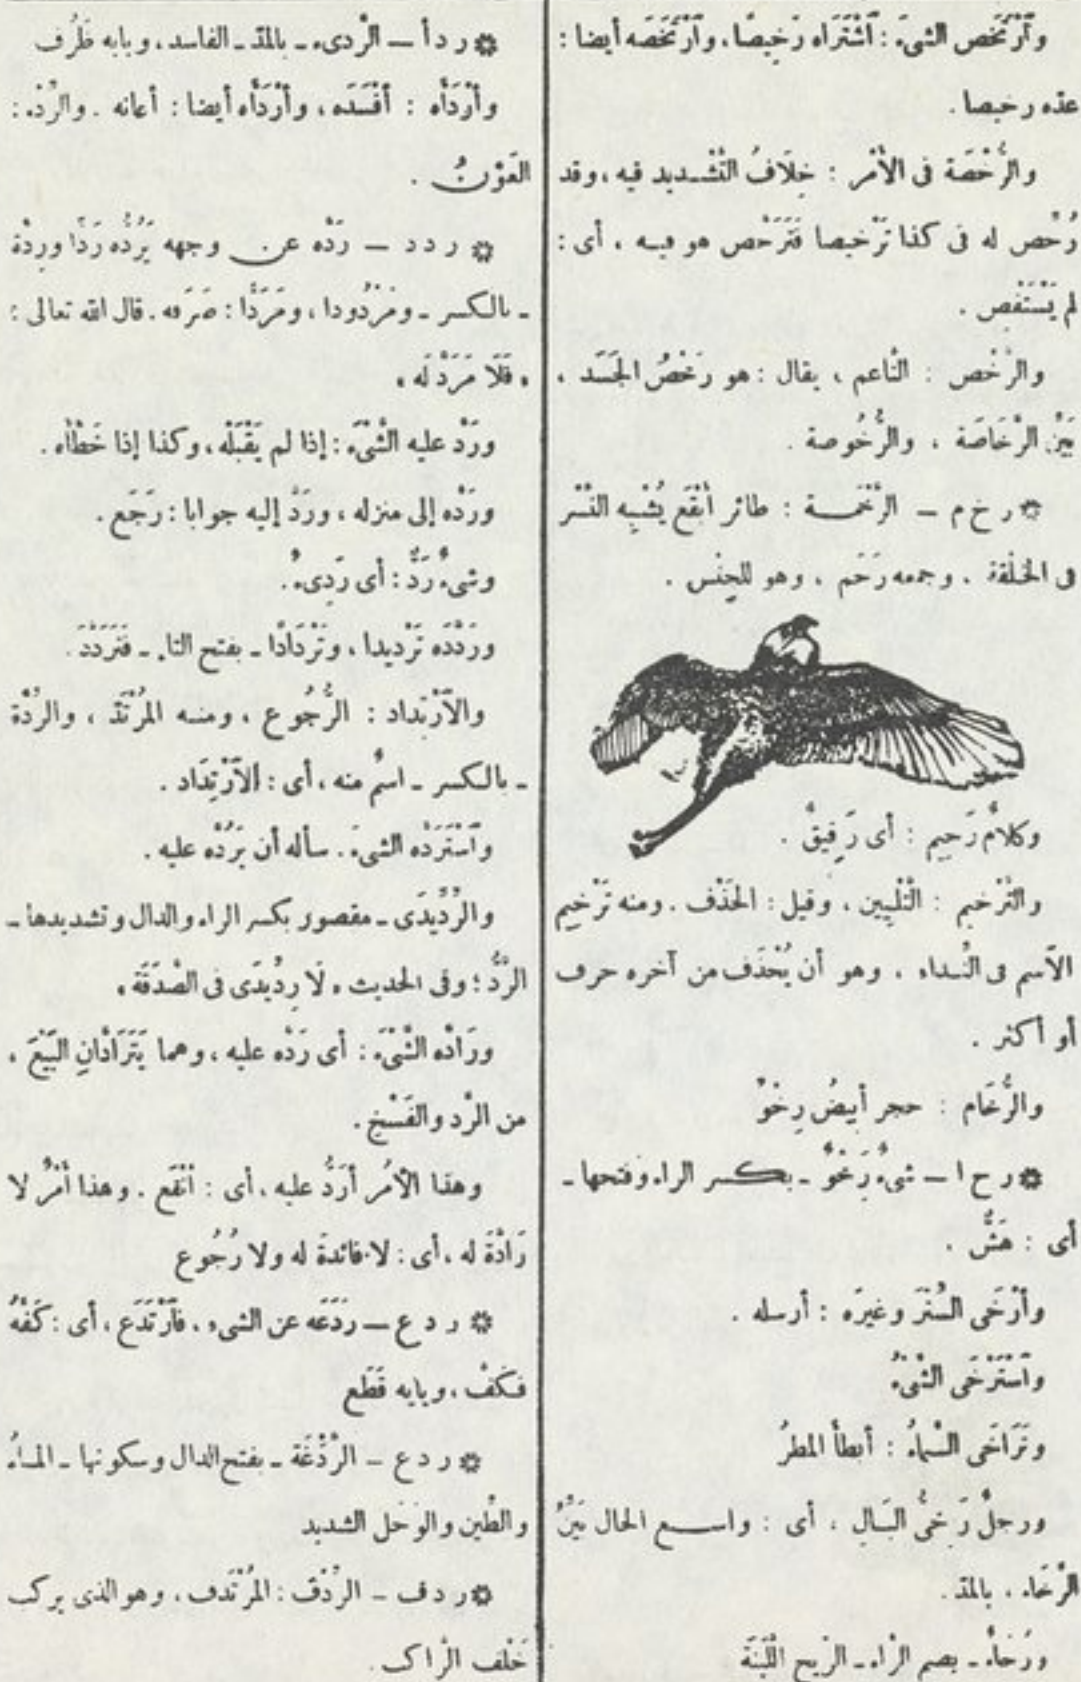 وَٱرْتَخَص الشىءَ : ٱشْتَرَاه رَخيصًا، وَٱرْتَخَصَه أيضا :
عدّه رخيصا .
والرُّخْصَة فى الأَمْر : خِلَافُ التَّشْديد فيه ، وقد
رُخِّص له فى كذا تَرْخيصا فَتَرَخَّص هو فيه ، أى :
لم يَسْتَقْصِ .
والرَّخْص : النَّاعم ، يقال : هو رَخْصُ الجَسَد ،
بَيِّنُ الرَّخَاصَة ، والرُّخُوصة .
❊ ر خ م – الرَّخَمـة : طائر أَبْقَع يُشْبِه النَّسْر
فى الخلْقة . وجمعه رَخَم ، وهو للجِنْس .
وكلامٌ رَخِيم : أى رَفيقٌ .
والتَّرْخيم : التَّلْيين ، وقيل : الحَذْف . ومنه تَرْخيم
الآسم فى النِّداء ، وهو أن يُحْذَف من آخره حرف
أو أكثر .
والرُّخَام : حجر أبيضُ رِخْوٌ
❊ ر خ ا – شىءٌ رَِخْوٌ ـ بكسر الراء وفتحها ـ
أى : هَشٌّ .
وأَرْخَى السِّتْرَ وغيرَه : أرسله .
وٱسْتَرْخَى الشَّىْءُ
وتَرَاخَى السَّماءُ : أبطأ المطرُ
ورجلٌ رَخىُّ البَال ، أى : واسع الحال بَيِّنُ
الرَّخَاء ، بالمدّ .
ورُخَاءٌ ـ بضم الرَّاء ـ الرِّيح اللَّيِّنَة
❊ ر د أ – الرَّدىء ـ بالمدّ ـ الفاسد ، وبابه ظَرُف
وأَرْدَأَه : أَفْسَدَه ، وأَرْدَأَه أيضا : أعانه . والرِّدْء :
العَوْنُ .
❊ ر د د – رَدَّه عن وجهه يَرُدُّه رَدًّا ورِدَّة
ـ بالكسر ـ ومَرْدُودا ، ومَرَدًّا : صَرَفه . قال الله تعالى :
« فَلَا مَرَدَّ لَه »
ورَدَّ عليه الشَّىْءَ : إذا لم يَقْبَلْه ، وكذا إذا خَطَّأه .
ورَدَّه إلى منزله ، ورَدَّ إليه جوابا : رَجَع .
وشىءٌ رَدٌّ : أى رَدِىءٌ .
ورَدَّدَه تَرْديدا ، وتَرْدَادًا ـ بفتح التاء ـ فَتَرَدَّدَ .
والٱرْتداد : الرُّجُوع ، ومنه المُرْتَدّ ، والرِّدَّة
ـ بالكسر ـ اسمٌ منه ، أى : الٱرْتِدَاد .
وٱسْتَرَدَّه الشىءَ . سأله أن يَرُدَّه عليه .
والرِّدِّيدَى ـ مقصور بكسر الراء والدال وتشديدها ـ
الرَّدُّ ؛ وفى الحديث « لَا رِدِّيدَى فى الصَّدَقَة »
ورَادَّه الشَّىْءَ : أى رَدَّه عليه ، وهما يَتَرَادَّانِ البَيْعَ ،
من الرَّد والفَسْخ .
وهذا الأَمْرُ أَرَدُّ عليه ، أى : أَنْفَع . وهذا أَمْرٌ لا
رَادَّةَ له ، أى : لا فائدةَ له ولا رُجُوع
❊ ر د ع – رَدَعَه عن الشىء ، فٱرْتَدَع ، أى : كَفَّهُ
فكَفَّ ، وبابه قَطَع
❊ ر د ع – الرَّدْغَة ـ بفتح الدال وسكونها ـ الماءُ
والطِّين والوَحَل الشديد
❊ ر د ف – الرِّدْف : المُرْتَدف ، وهو الذى يركب
خَلْف الرَّاكب .